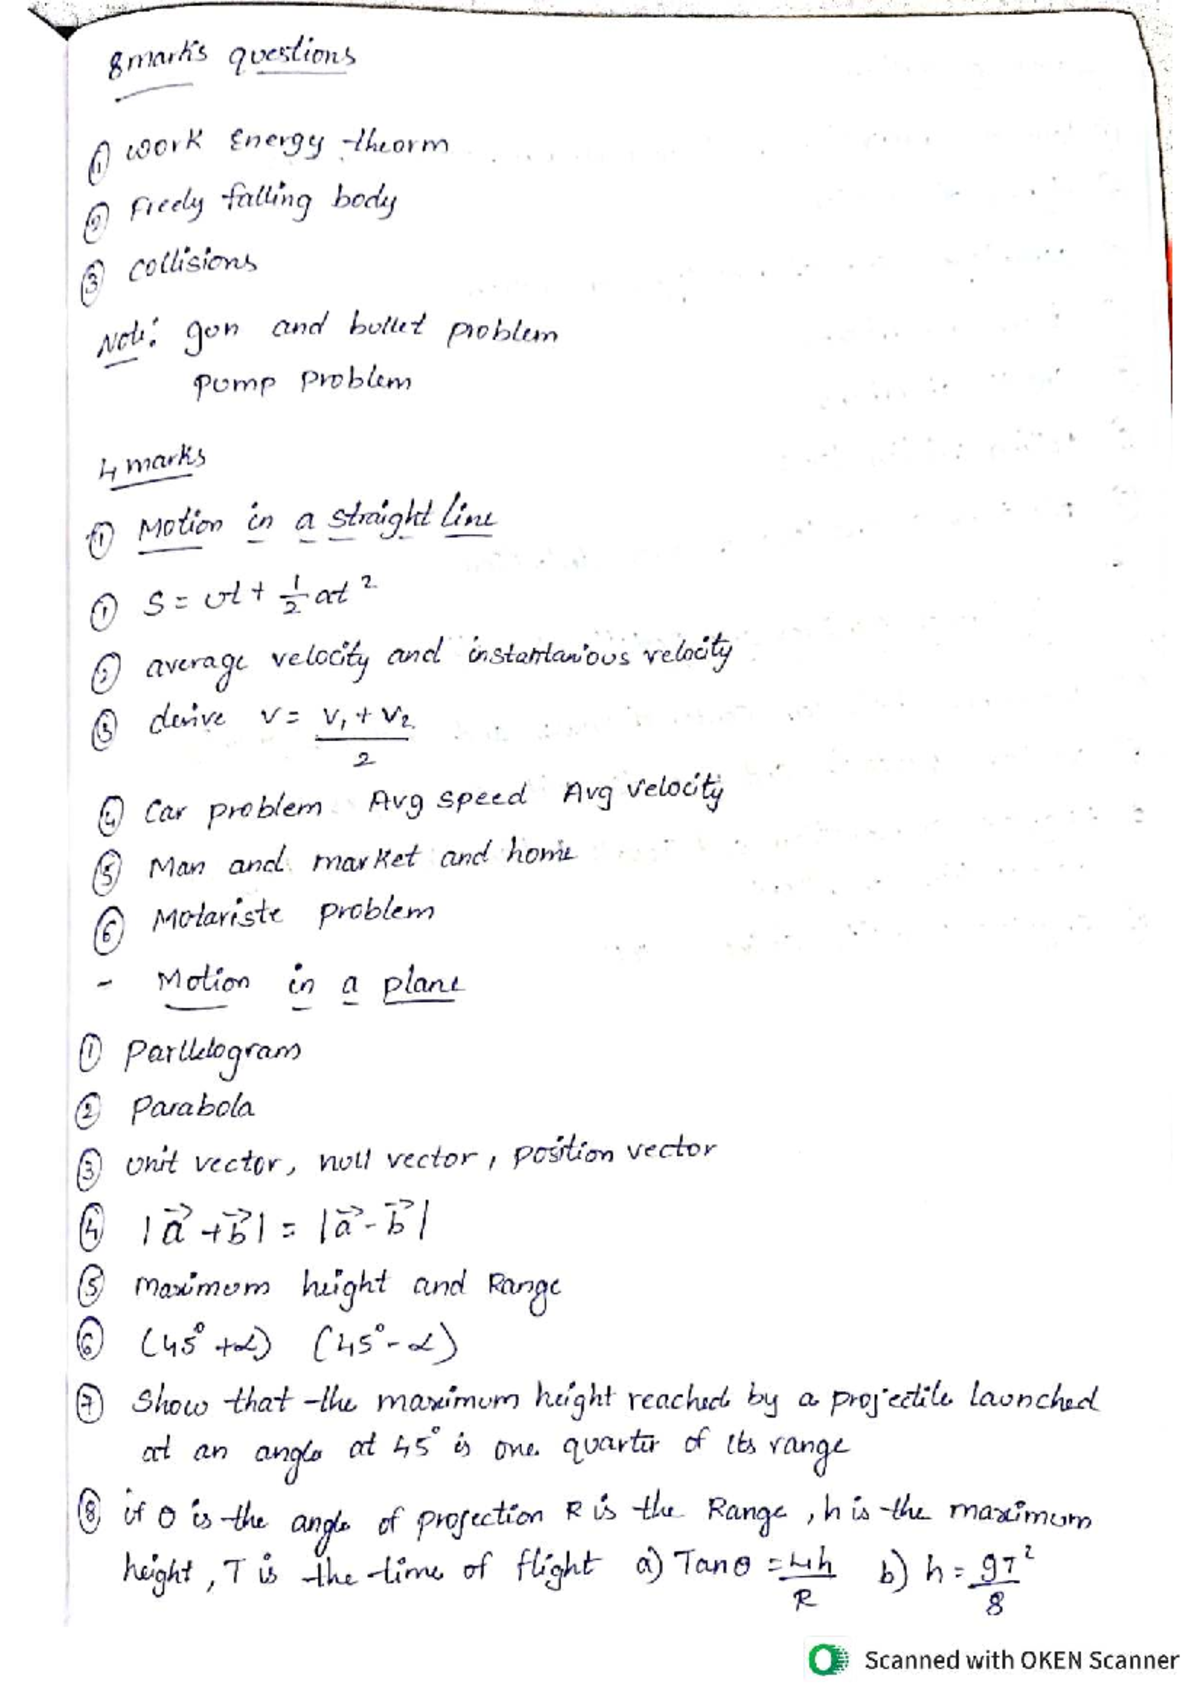 8marks questions
① work Energy theorm
② Freely falling body
③ collisions
Note: gun and bullet problem
pump problem
4 marks
① Motion in a straight line
① S = ut + 1/2 at²
② average velocity and instantanious velocity
③ derive v = v₁ + v₂ / 2
④ Car problem Avg speed Avg velocity
⑤ Man and market and home
⑥ Motariste problem
- Motion in a plane
① Parllelogram
② parabola
③ unit vector, null vector, position vector
④ |a⃗ + b⃗| = |a⃗ - b⃗|
⑤ maximum height and Range
⑥ (45° + α) (45° - α)
⑦ Show that the maximum height reached by a projectile launched
at an angle at 45° is one quarter of its range
⑧ if θ is the angle of projection R is the Range, h is the maximum
height, T is the time of flight a) Tanθ = 4h/R b) h = gT²/8
Scanned with OKEN Scanner